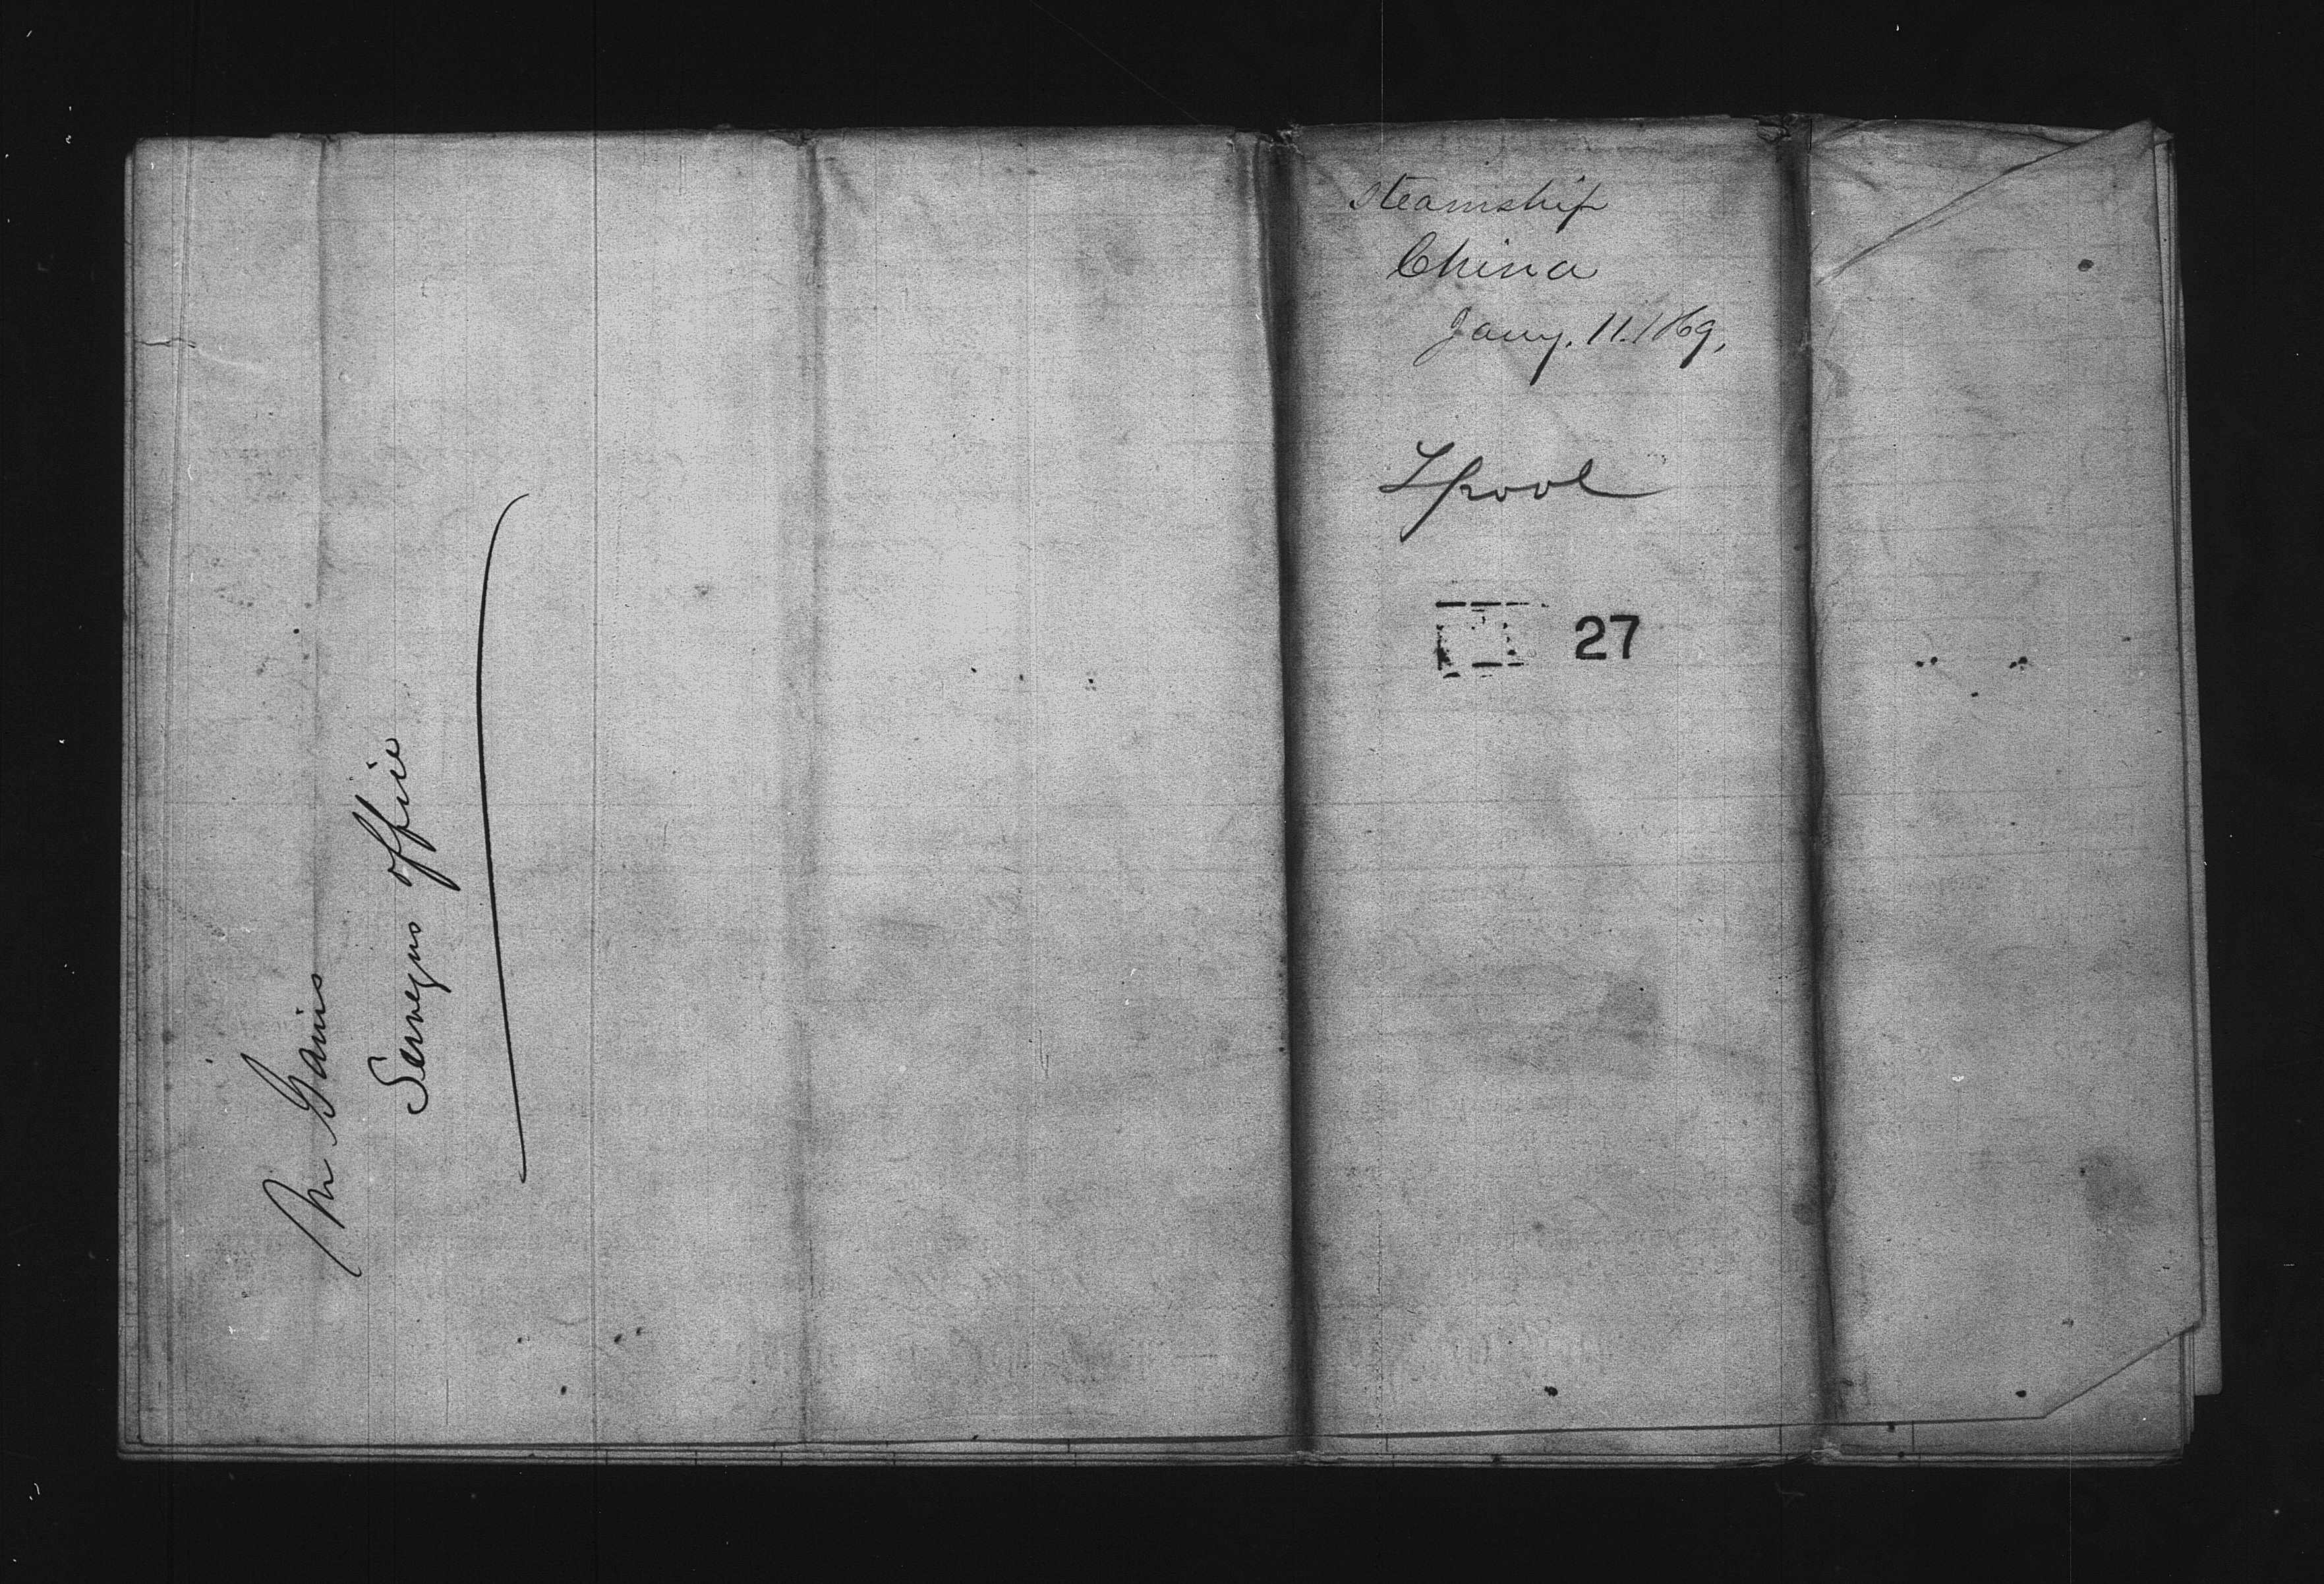 Steamship
China
Jany. 11. 1869,
Lpool
27
Mr Gains
Serveyns office